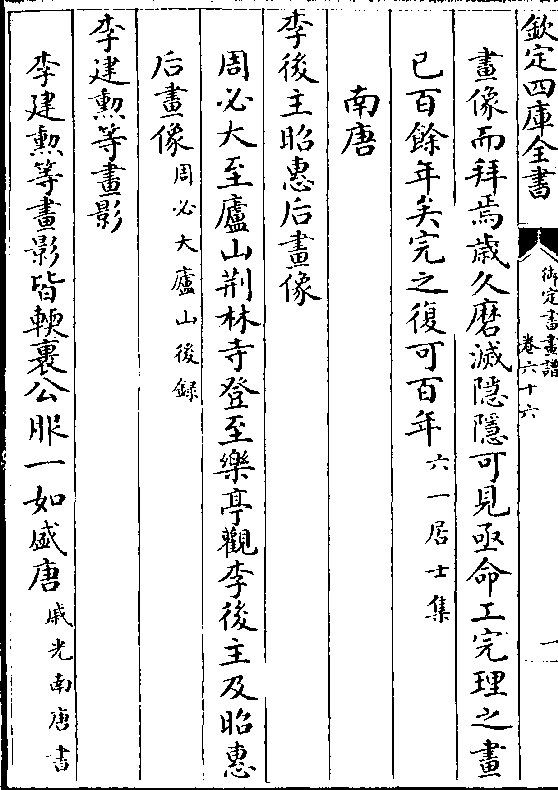 欽定四庫全書
御定書畫譜
卷六十六
一
畫像而拜焉歳久磨滅隱隱可見亟命工完理之畫
已百餘年矣完之復可百年六一居士集
南唐
李後主昭惠后畫像
周必大至廬山荆林寺登至樂亭觀李後主及昭惠
后畫像周必大廬山後録
李建勲等畫影
李建勲等畫影皆輭裹公服一如盛唐戚光南唐書